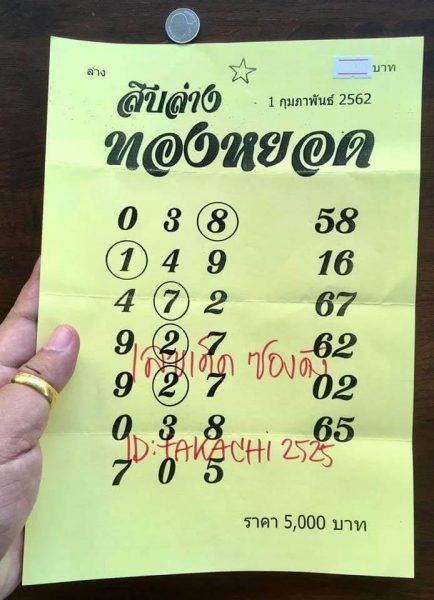 ล่าง บาท
สิบล่าง 1 กุมภาพันธ์ 2562
ทองหยอด
0 3 8 58
1 4 9 16
4 7 2 67
9 2 7 62
เลขเด็ด ซองดัง
9 2 7 02
0 3 8 65
ID:TAKACHI 2525
7 0 5
ราคา 5,000 บาท